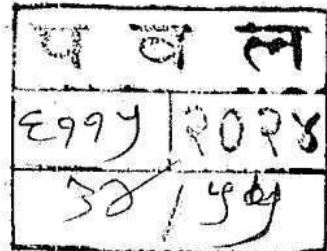 प व ल
६११५ | २०२४
३४ / ५७